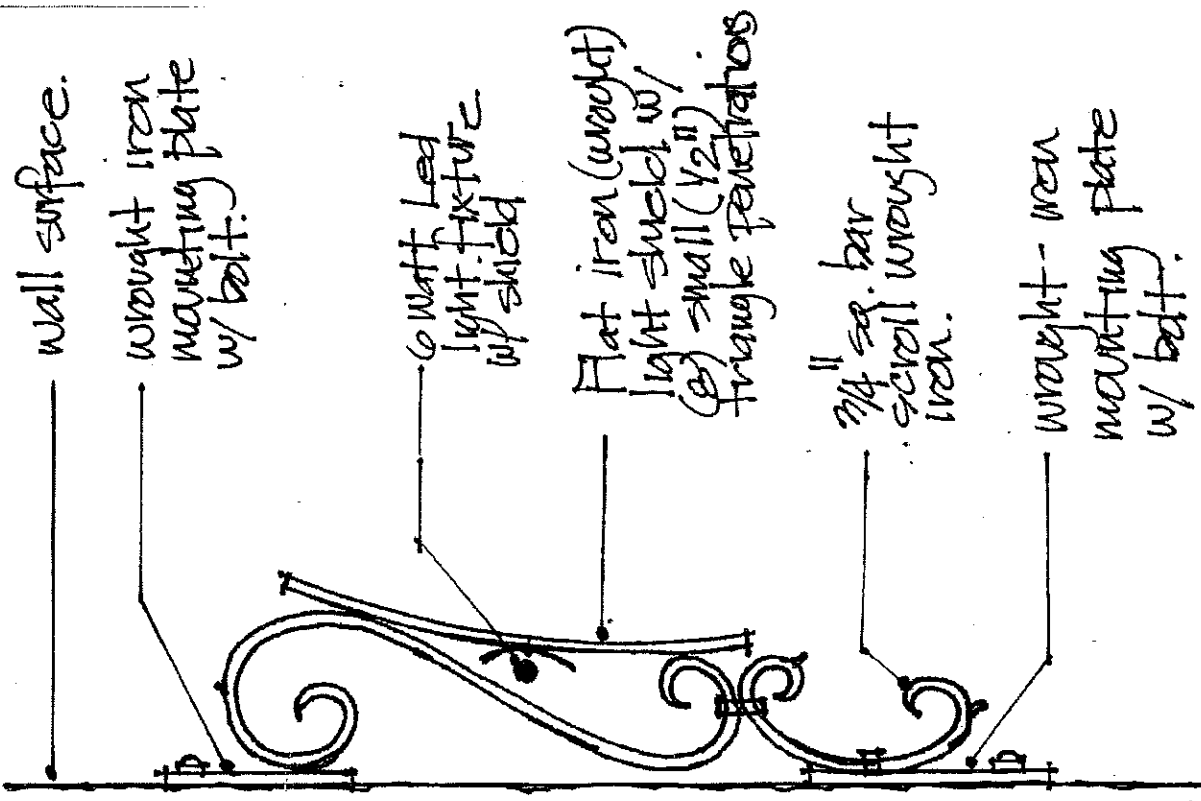 wall surface.
wrought iron
mounting plate
w/ bolt.
6 watt Led
light fixture
w/ shield
Flat iron (wrought)
light shield w/
(8) small (1/2")
triangle penetrations
3/4" sq. bar
scroll wrought
iron.
wrought-iron
mounting plate
w/ bolt.